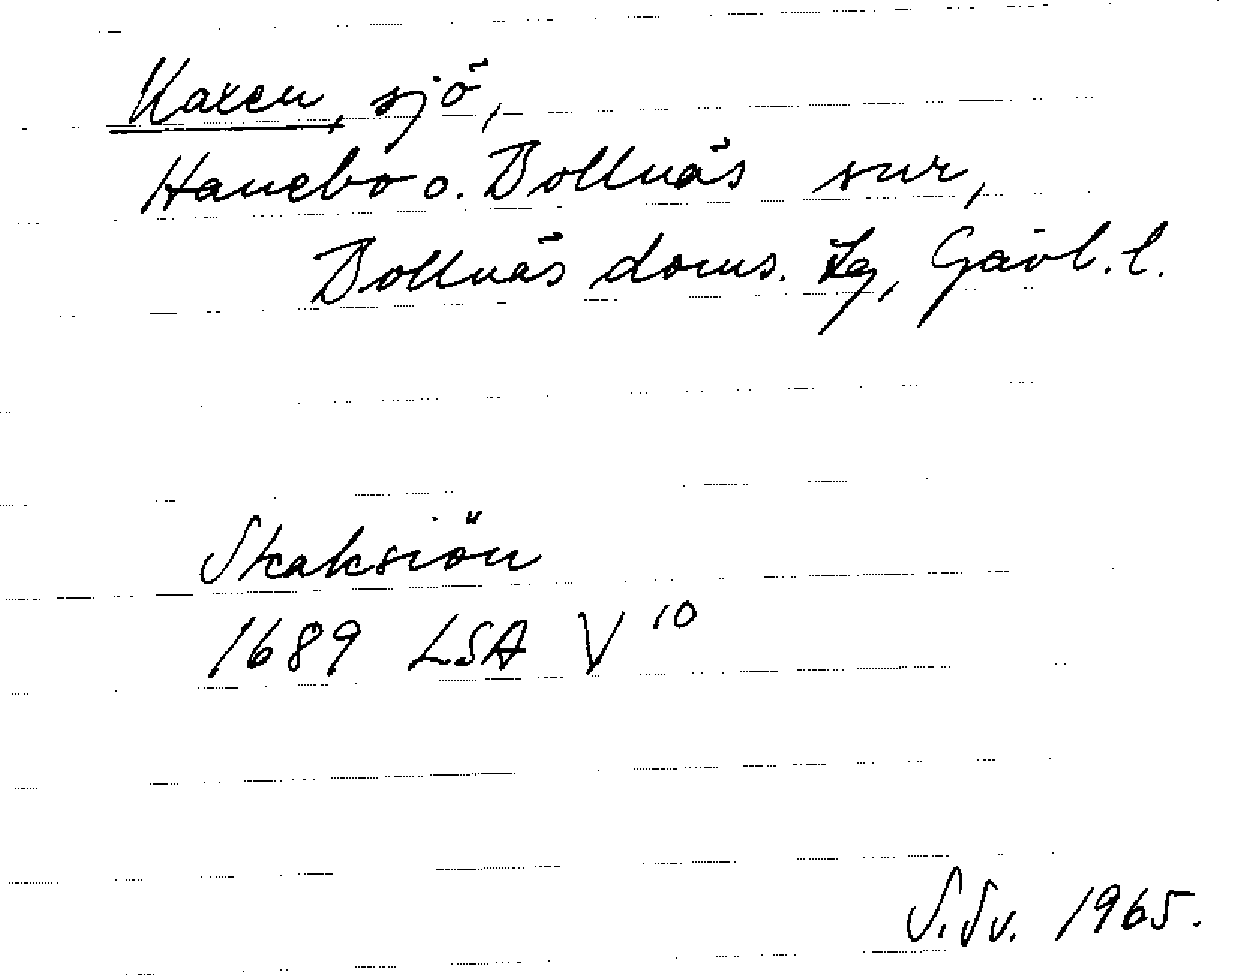 Kaxen, sjö,
Hanebo o. Bollnäs snr,
Bollnäs doms. tg, Gävl. l.
Skaksiön
1689 LSA V 10
S. Sv. 1965.